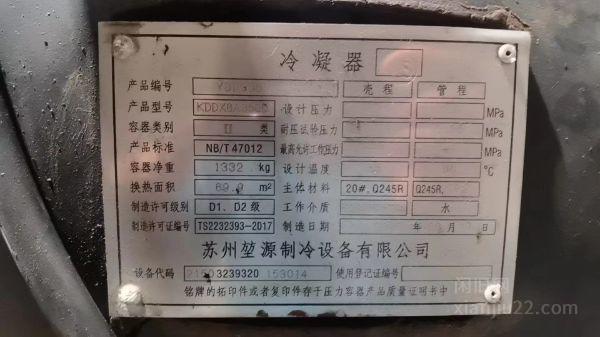 冷凝器
产品编号
壳程 管程
产品型号 设计压力 MPa
容器类别 II 类 耐压试验压力 MPa
产品标准 NB/T 47012 最高允许工作压力 MPa
容器净重 1332 kg 设计温度 ℃
换热面积 m² 主体材料 20#、Q245R Q245R
制造许可级别 D1、D2 级 工作介质 水
制造许可证编号 TS2232393-2017 制造日期 年 月 日
苏州堃源制冷设备有限公司
设备代码 3239320 153014 使用登记证编号
铭牌的拓印件或者复印件存于压力容器产品质量证明书中
闲旧网
xianjiu22.com